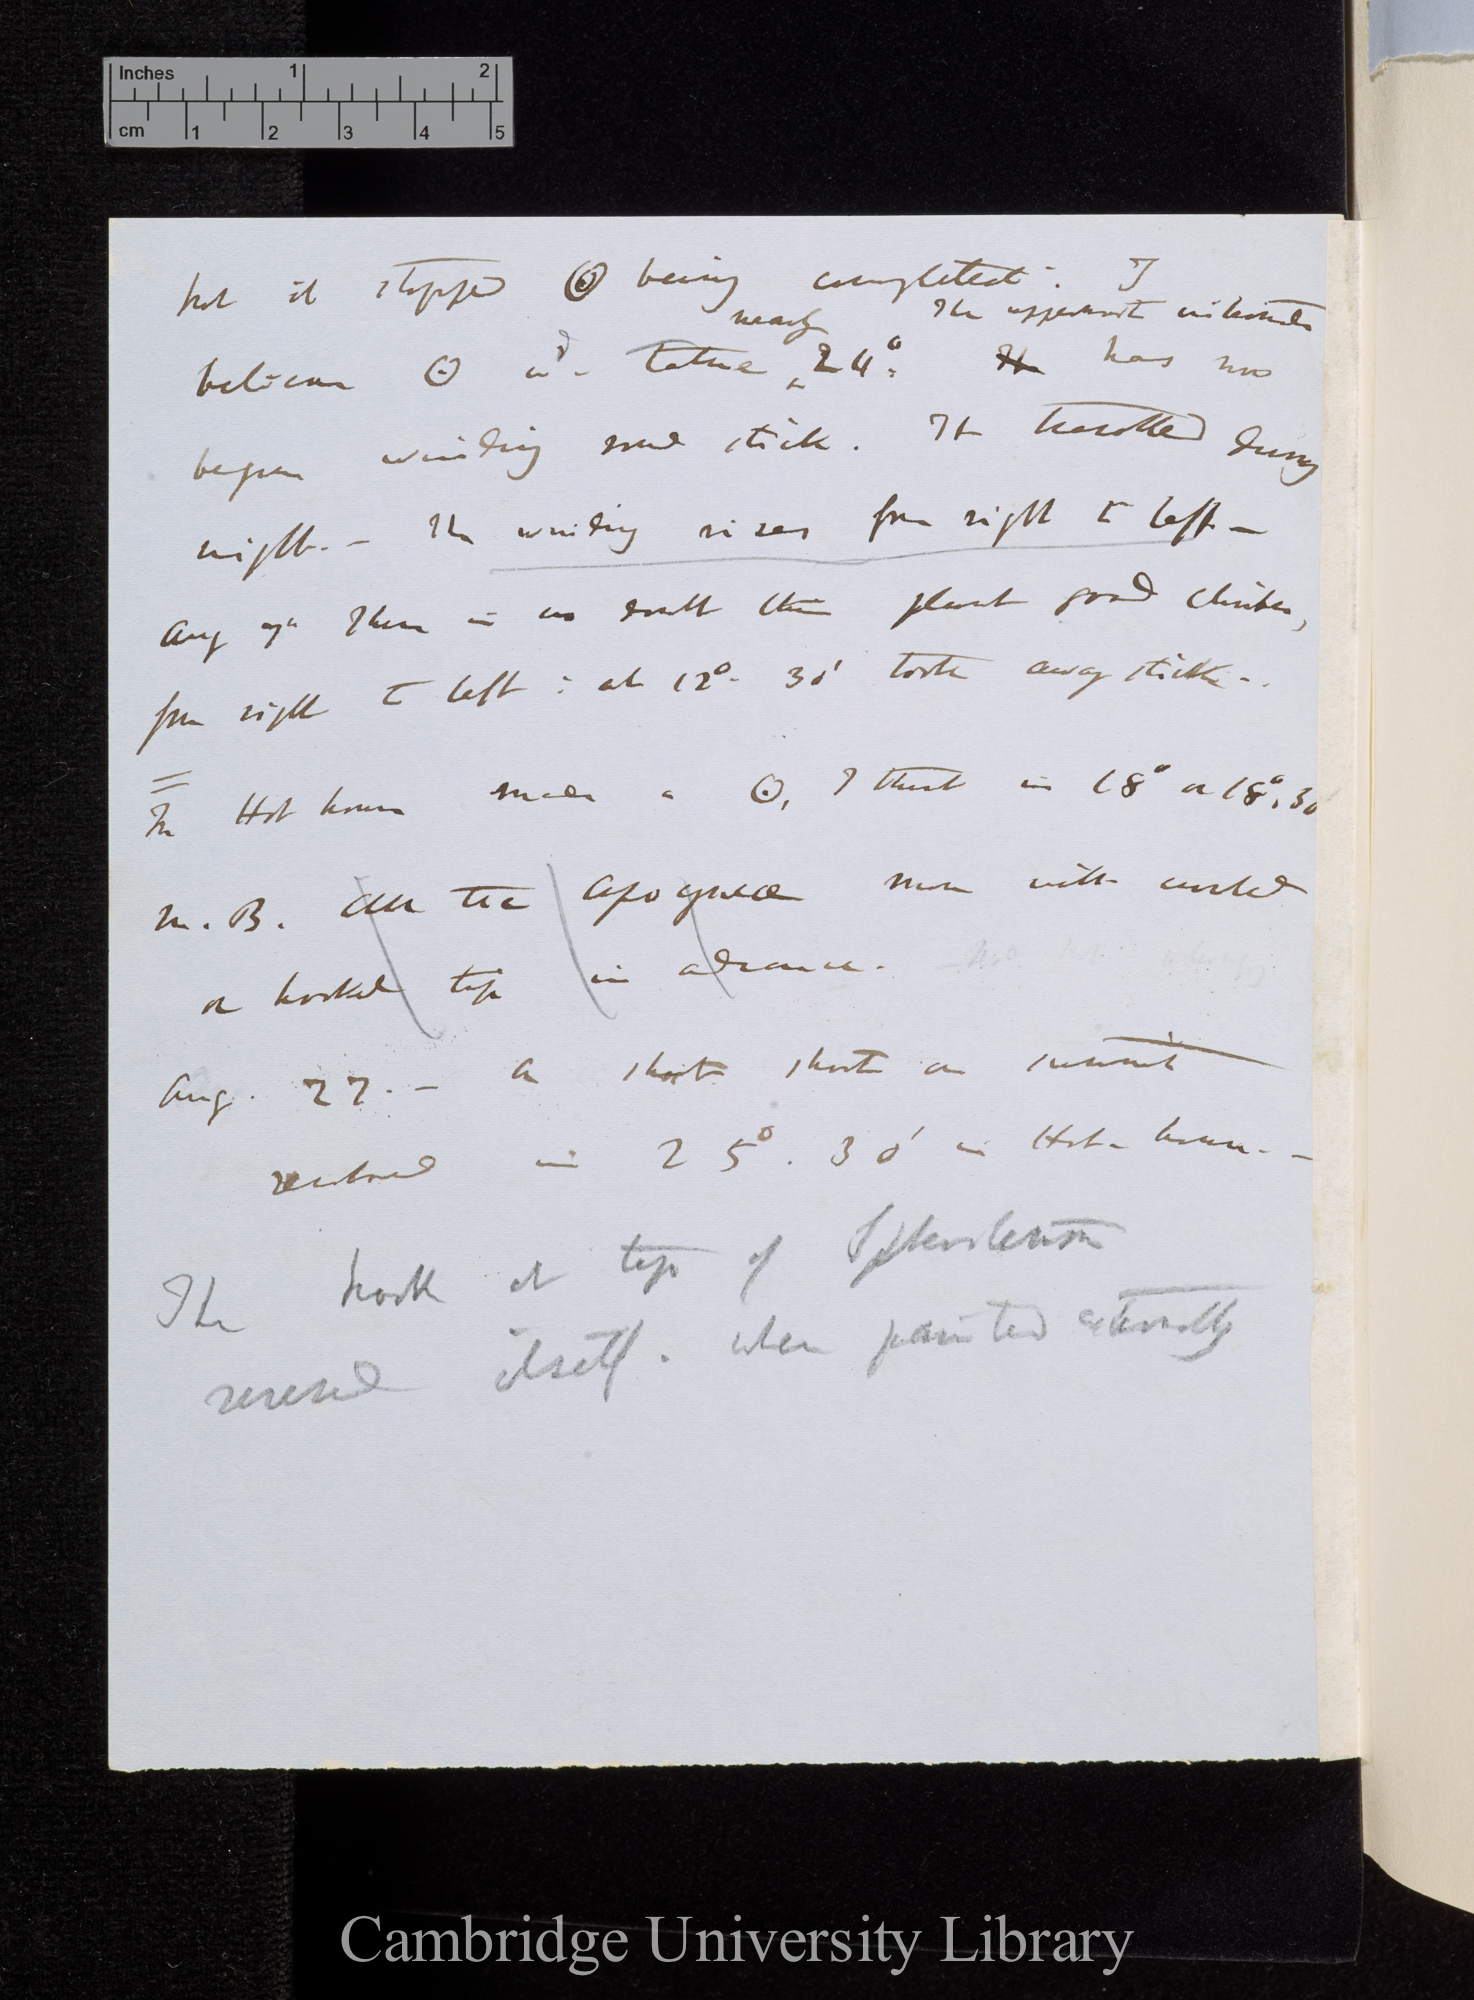 Inches 1 2
cm 1 2 3 4 5
but it stopped ⊙ being completed: I
nearly The uppermost internode
believe ⊙ wd. take 24°: It has now
begun winding round stick. It travelled during
night. — The winding rises from right to left —
Aug There is no doubt this plant good climber,
from right to left: at 12°. 30' took away stick —.
In Hot house made a ⊙, I think in 18° or 18°. 30
N.B. All the move with curled
or hooked tip in advance.
Aug. 27. — A short shoot on summit
revolved in 25°. 30' in Hot-house. —
The hook at top of
reversed itself. when painted externally
Cambridge University Library